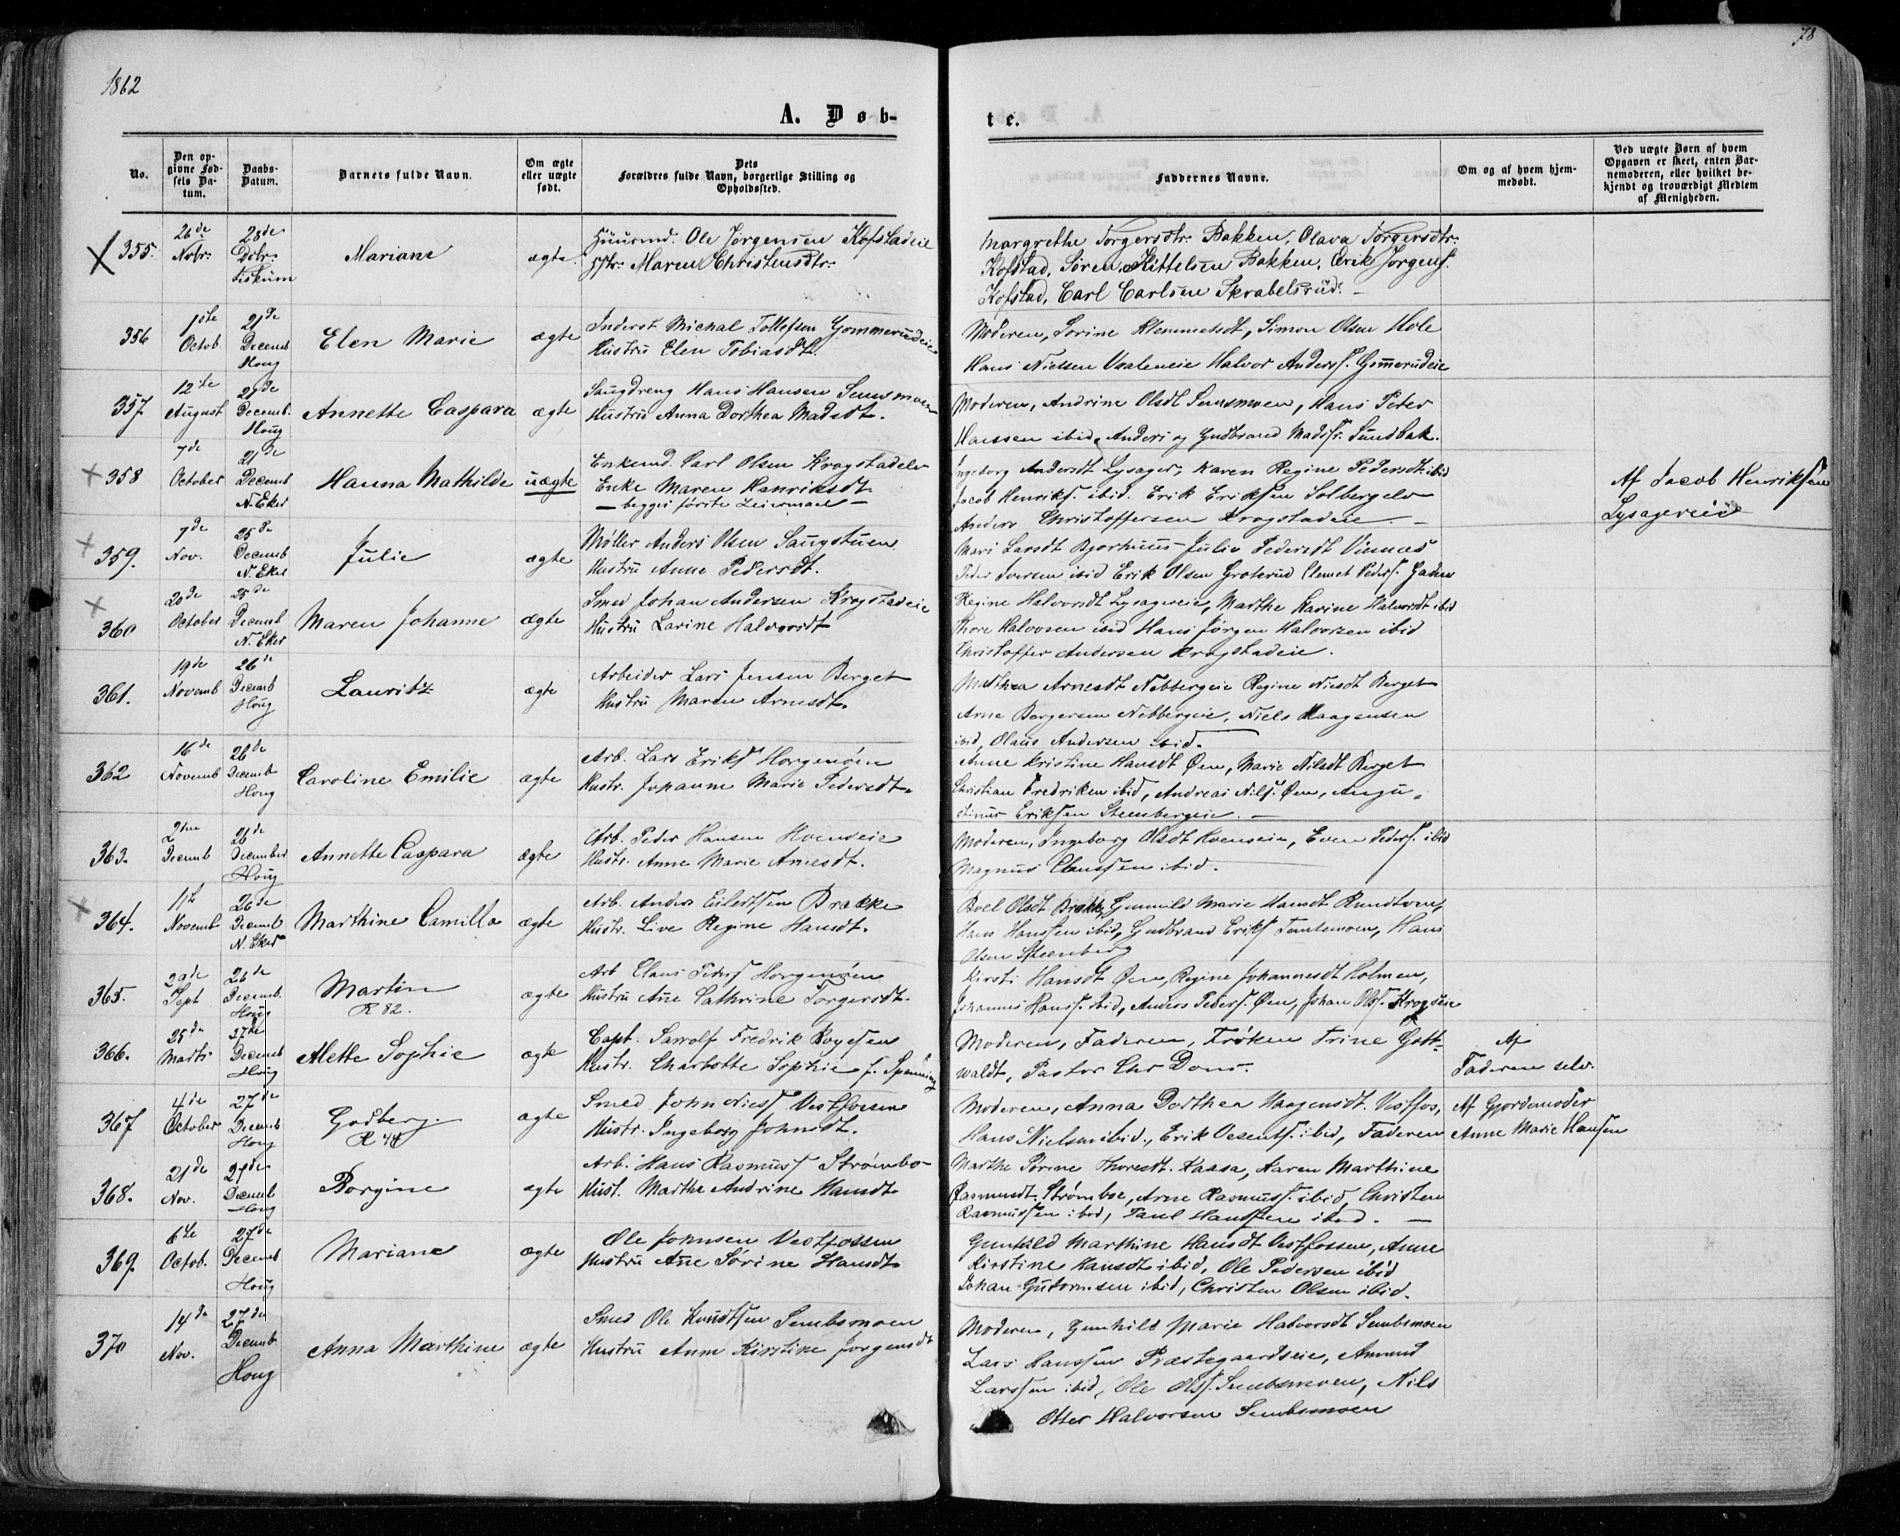 1862
78
A. Døb-
te.
No.
Den op-
givne Fød-
sels Da-
tum.
Daabs-
Datum.
Barnets fulde Navn.
Om ægte
eller uægte
født.
Dets
Forældres fulde Navn, borgerlige Stilling og
Opholdssted.
Faddernes Navne.
Om og af hvem hjem-
medøbt.
Ved uægte Børn af hvem
Opgaven er skeet, enten Bar-
nemoderen, eller hvilket be-
kjendt og troværdigt Medlem
af Menigheden.
355.
26de
Nobr.
28de
Fiskum
Mariane
ægte.
Huusmd. Ole Jørgensen Kofstadeie
Hstr. Maren Christensdtr.
Margrethe Torgersdtr. Bakken, Olava Torgersdtr.
Kofstad, Søren Kittelsen Bakken, Erik Jørgens.
Kofstad, Carl Carlsen Skrabelsrud. –
356
1ste
Octob.
21de
Decemb
Houg
Elen Marie
ægte
Inderst Michal Tollefsen Gommerudeie
Hustru Elen Tobiasdt.
Moderen, Sorine Klemmetsdt, Simon Olsen Hole
Hans Nielsen Halvor Anderss. Gommerudeie
357
12te
August
21de
Decemb.
Houg
Annette Caspara
ægte
Saugdreng Hans Hansen Semsmoen
Hustru Anna Dorthea Madsdt.
Moderen, Andrine Olsdt Semsmoen, Hans Peter
Hanssen ibid, Anders og Gudbrand Madss. Sundbak.
358
7de
October
21de
Decemb
N. Eker
Hanna Mathilde
uægte
Enkemd. Carl Olsen Krogstadelv
Enke Maren Henriksdt.
– begges første Leiermaal –
Ingeborg Andersdt Lysager, Karen Regine Pedersdt ibid
Jacob Henriks. ibid. Erik Eriksen Solbergelv
Anders Christoffersen Krogstadeie. –
Af Jacob Henriksen
Lysagereie
359.
7de
Nov.
25de
Decemb
N. Eker
Julie
ægte
Møller Anders Olsen Saugstuen
Hustru Anne Pedersdt.
Mari Larsdt Bjorhuus Julie Pedersdt Vinnæs
Peder Iversen ibid Erik Olsen Groterud Clemet Peders.
360
20de
October
25de
Decemb
N. Eker
Maren Johanne
ægte
Smed Johan Andersen Krogstadeie
Hustru Larine Halvorsdt
Regine Halvorsdt Lysagereie, Marthe Karine Halvorsdt ibid
Thore Halvorsen ibid Hans Jørgen Halvorsen ibid
Christoffer Andersen Krogstadeie.
361.
19de
Novemb
26de
Decemb
Houg
Lauritz
ægte
Arbeider Lars Jensen Berget
Hustru Maren Arnesdt.
Mathea Arnesdt Nebbergeie Regine Niesdt Berget
Arne Borgersen Nebbergeie, Niels Haagensen
ibid, Olaus Andersen ibid.
362
16de
Novemb
26de
Decemb
Houg
Caroline Emilie
ægte
Arb. Lars Eriks. Horgenøen
Hustr. Johanne Marie Pedersdt.
Anne Kristine Hansdt Øen, Marie Nilsdt Berget
Christian Fredriksen ibid, Andreas Nils. Øen, Augu-
stinus Eriksen Steensbergeie. –
363.
2den
Decemb
26de
December
Houg
Annette Caspara
ægte
Arb. Peder Hansen Hoenseie
Hustr. Anne Marie Arnesdt.
Moderen, Ingeborg Olsdt Hoenseie, Even Peders. ibid
Magnus Clausen ibid.
364.
11te
Novemb
26de
Decemb
N. Eker
Marthine Camilla
ægte
Arb. Anders Eilertsen Brække
Hustr. Live Regine Hansdt.
Boel Olsdt Brække, Gunnild Marie Hansdt
Hans Hanssen ibid, Gudbrand Eriks. Temtemoen, Hans
Olsen Steenberg
365.
29de
Sept
26de
Decemb.
Houg
Martin
R 82.
ægte
Arb Claus Peders Horgenøen
Hustru Ane Cathrine Torgersdt.
Kirsti Hansdt Øen, Regine Johannesdt Holmen,
Johannes Hans. ibid, Anders Peders. Øen, Johan Ols.
366.
25de
Marts
27de
Decemb
Houg
Alette Sophie
ægte
Capt. Sarrolf Fredrik Roysen
Hustr. Charlotte Sophie f. Spenning
Moderen, Faderen, Frøken Trine Gott-
waldt, Pastor Chr Dons.
Af
Faderen selv.
367.
4de
October
27de
Decemb
Houg
Godberg.
R 44
ægte
Smed John Niess Vestfossen
Hustr. Ingeborg Johnsdt.
Moderen, Anna Dorthea Haagensdt. Vestfos,
Hans Nielsen ibid., Erik ibid, Faderen
Af Gjordemoder
Anne Marie Hansen
368.
21de
Nov.
27de
Decemb
Houg
Borgine
ægte
Arb. Hans Rasmuss Strømbo-
Hust. Marthe Andrine Hansdt.
Marthe Sørine Thoresdt. Kaasa, Karen Marthine
Rasmusdt. Strømboe, Arne Rasmuss. ibid, Christen
Rasmussen ibid, Paul Hanssen ibid. –
369.
6te
Octob.
27de
Decemb
Houg
Mariane
ægte
Ole Johnsen Vestfossen
Hustru Ane Sørine Hansdt.
Gunhild Marthine Hansdt Vestfossen, Anne
Kirstine Hansdt ibid, Ole Pedersen ibid
Johan Guttormsen ibid, Christen Olsen ibid.
370
14de
Nov.
27de
Decemb
Houg
Anna Marthine
ægte
Smed Ole Knudtsen Sembsmoen
Hustru Anne Kirstine Jørgensdt
Moderen, Gunhild Marie Halvorsdt Sembsmoen
Lars Hanssen Præstegaardseie, Amund
Larssen ibid, Ole Ols. Sembsmoen, Nils
Otter Halvorsen Sembsmoen